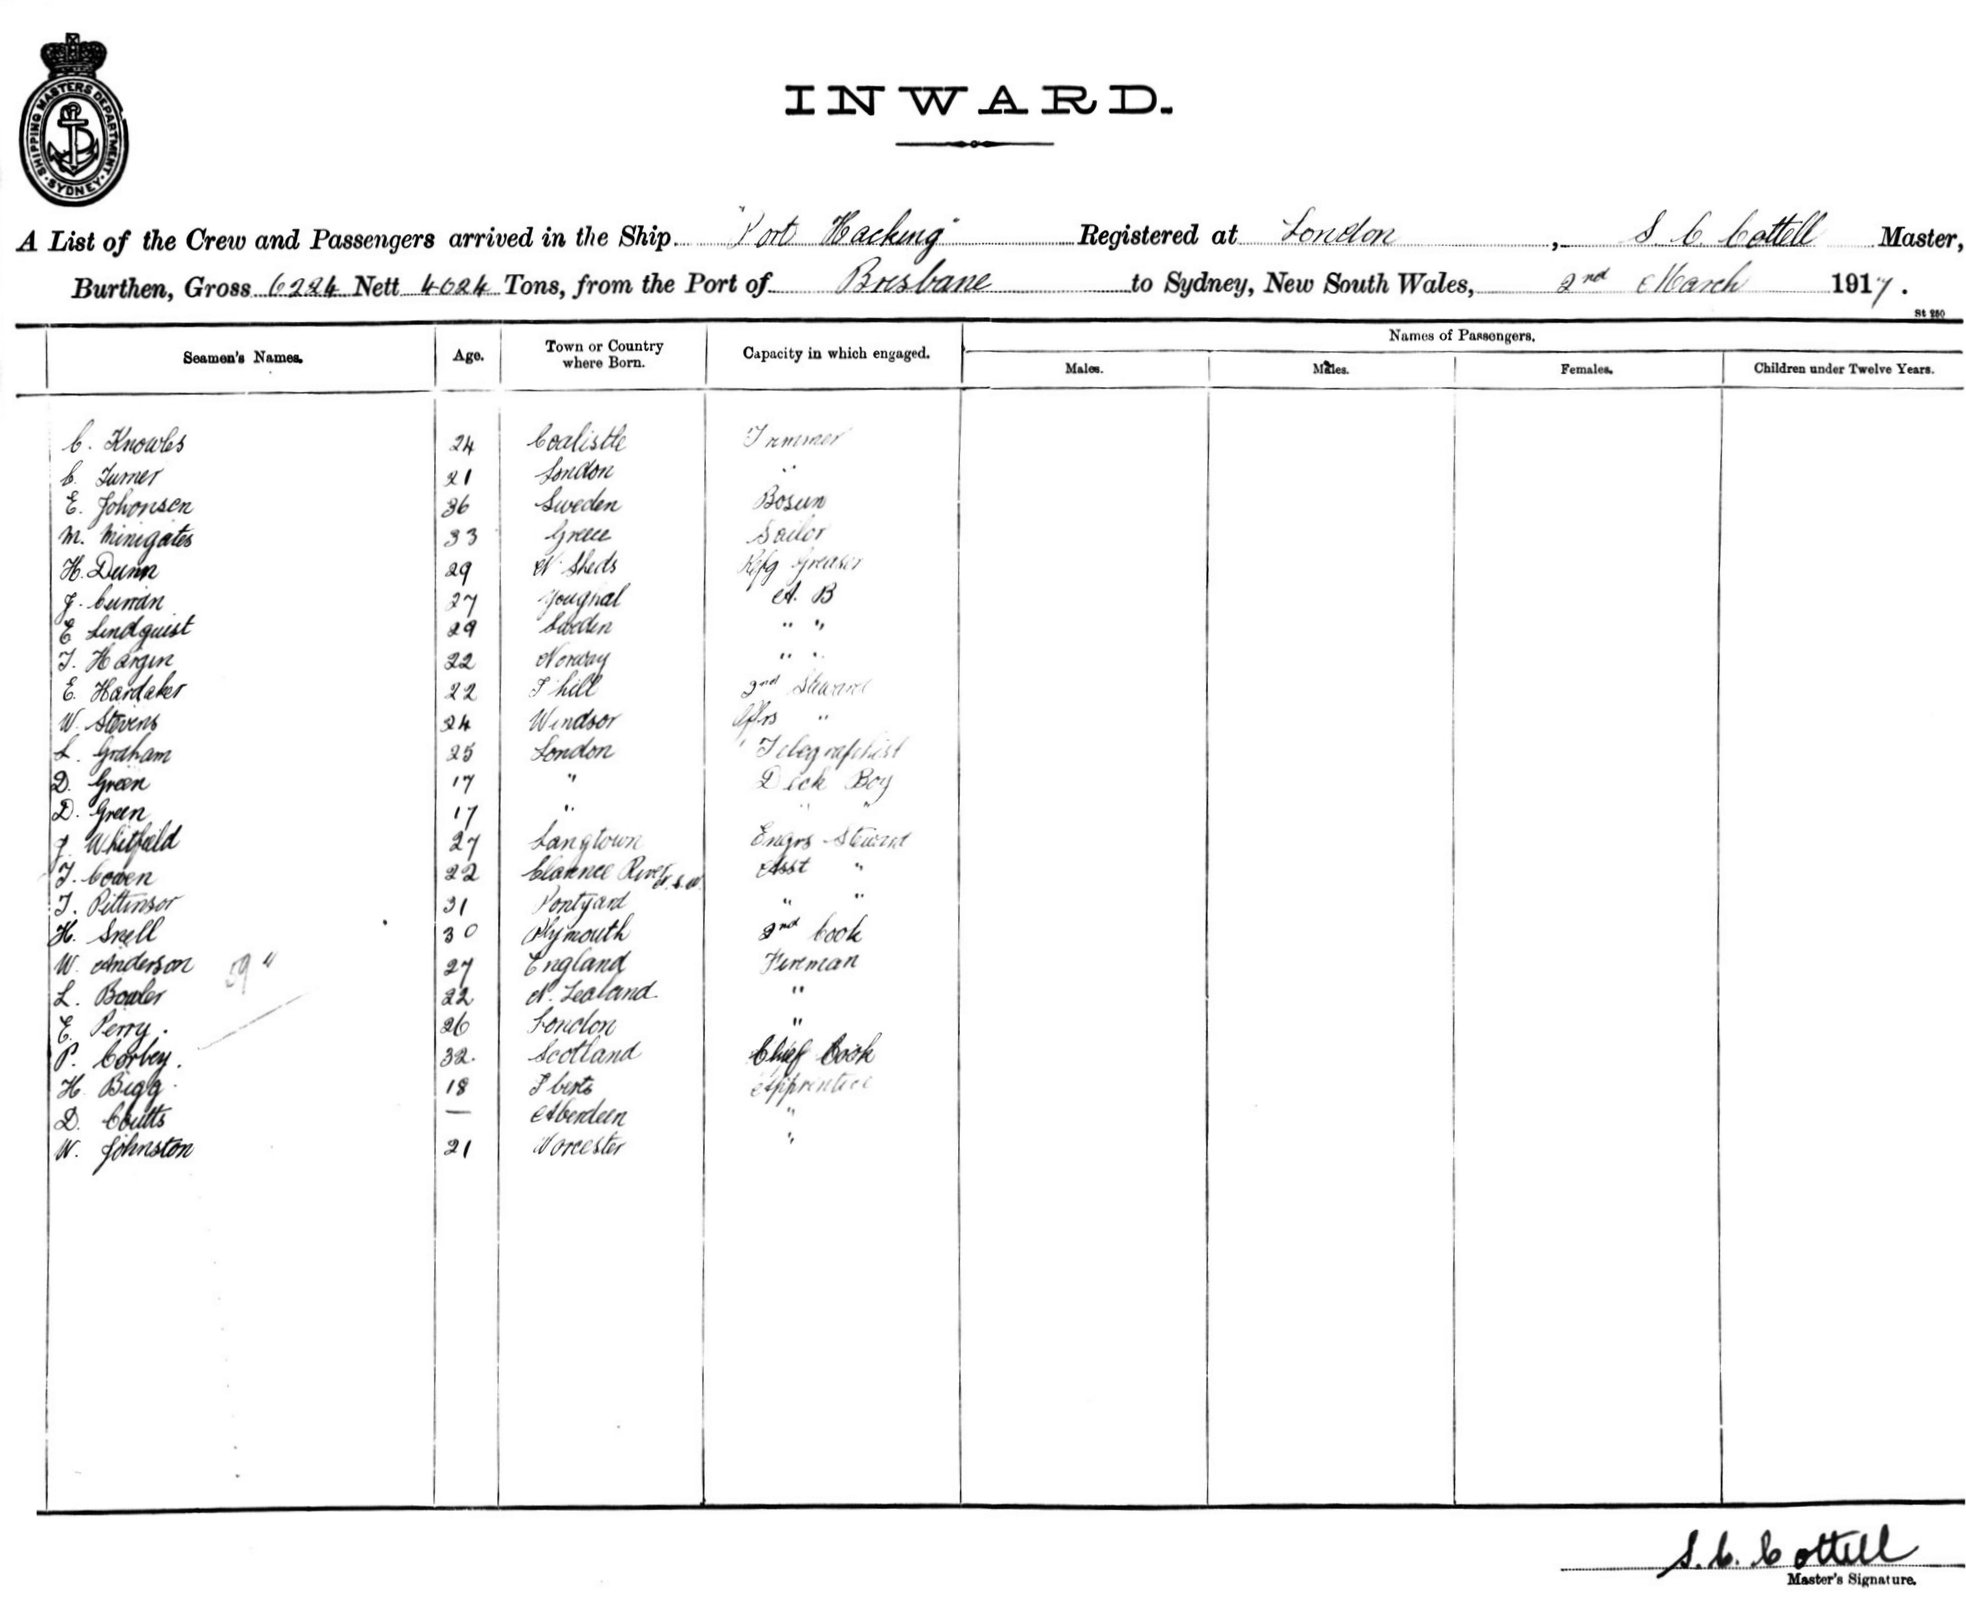 SHIPPING MASTERS DEPARTMENT
SYDNEY
INWARD.
A List of the Crew and Passengers arrived in the Ship "Port Hacking" Registered at London, S. C. Cottell Master,
Burthen, Gross 6224 Nett 4024 Tons, from the Port of Brisbane to Sydney, New South Wales, 2nd March 1917.
St 250
Seamen's Names. Age. Town or Country where Born. Capacity in which engaged. Names of Passengers.
Males. Males. Females. Children under Twelve Years.
C. Knowles 24 Coalistle Trimmer
C. Turner 21 London "
E. Johonsen 36 Sweden Bosun
M. Minigates 33 Greece Sailor
H. Dunn 29 N. Sheds Refg Greaser
J. Curran 27 Youghal A. B
E Lindquist 29 Sweden " "
T. Hargin 22 Norway " "
E. Hardaker 22 T hill 2nd Steward
W. Stevens 24 Windsor Offrs "
L. Graham 25 London Telegraphist
D. Green 17 " Deck Boy
D. Green 17 " " "
J. Whitfield 27 Langtown Engrs Steward
T. Cowen 22 Clarence River N.S.W. Asst "
T. Pittinsor 31 Pontyard " "
H. Snell 30 Plymouth 2nd Cook
W. Anderson 59 " 27 England Fireman
L. Bowler 22 N. Zealand. "
E. Perry. 26 London "
P. Corbey. 32. Scotland Chief Cook
H. Bigg 18 Apprentice
D. Coutts — Aberdeen "
W. Johnston 21 Worcester "
S. C. Cottell
Master's Signature.